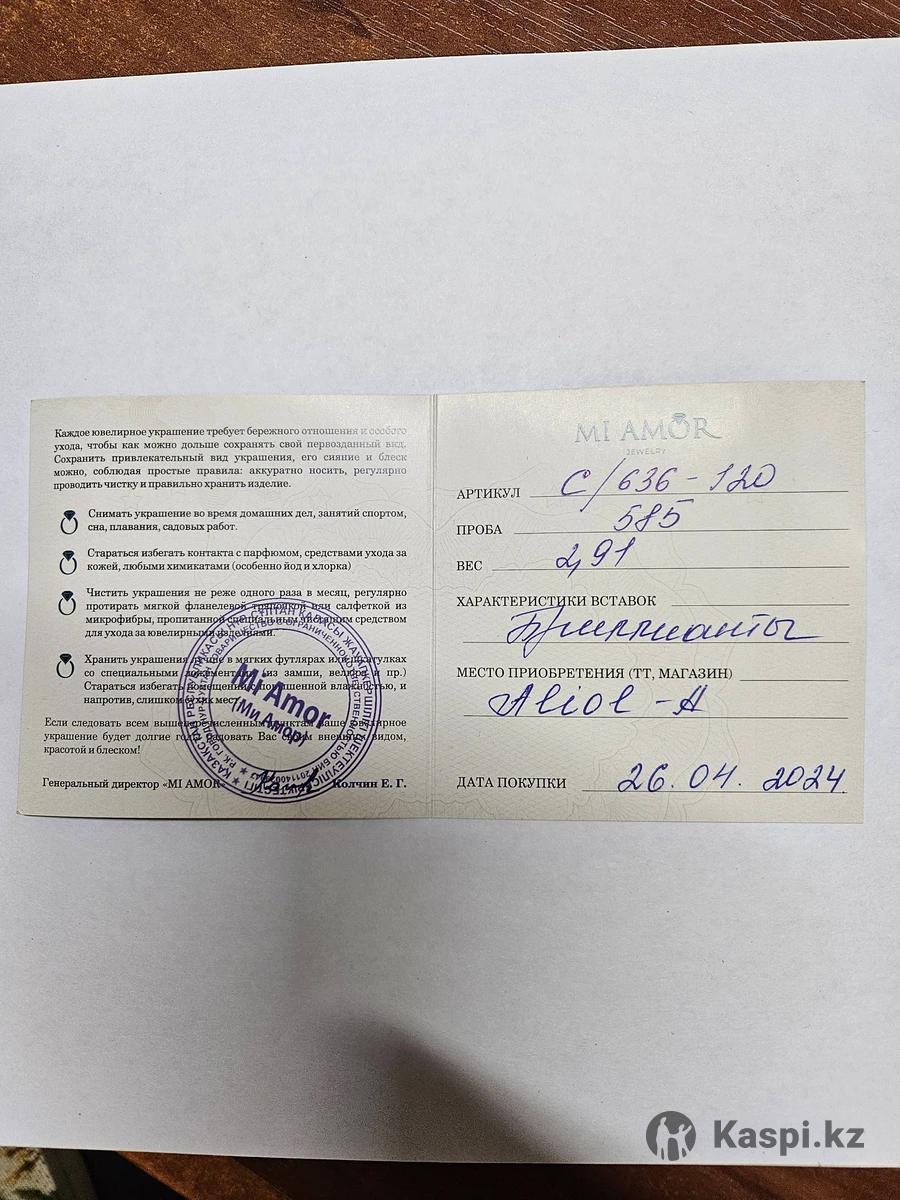 Каждое ювелирное украшение требует бережного отношения и особого
ухода, чтобы как можно дольше сохранять свой первозданный вид.
Сохранить привлекательный вид украшения, его сияние и блеск
можно, соблюдая простые правила: аккуратно носить, регулярно
проводить чистку и правильно хранить изделие.
Снимать украшение во время домашних дел, занятий спортом,
сна, плавания, садовых работ.
Стараться избегать контакта с парфюмом, средствами ухода за
кожей, любыми химикатами (особенно йод и хлорка)
Чистить украшения не реже одного раза в месяц, регулярно
протирать мягкой фланелевой тряпочкой или салфеткой из
микрофибры, пропитанной специальным чистящим средством
для ухода за ювелирными изделиями.
Хранить украшения лучше в мягких футлярах или шкатулках
со специальными (из замши, велюра и пр.)
Стараться избегать помещений с повышенной влажностью, и
напротив, слишком сухих мест.
Если следовать всем вышеперечисленным пунктам ваше ювелирное
украшение будет долгие годы радовать Вас своим внешним видом,
красотой и блеском!
Генеральный директор «MI AMOR» Колчин Е. Г.
Mi Amor
(Ми Амор)
MI AMOR
JEWELRY
АРТИКУЛ С/636-120
ПРОБА 585
ВЕС 2,91
ХАРАКТЕРИСТИКИ ВСТАВОК
Бриллианты
МЕСТО ПРИОБРЕТЕНИЯ (ТТ, МАГАЗИН)
Aliol-A
ДАТА ПОКУПКИ 26.04.2024
Kaspi.kz